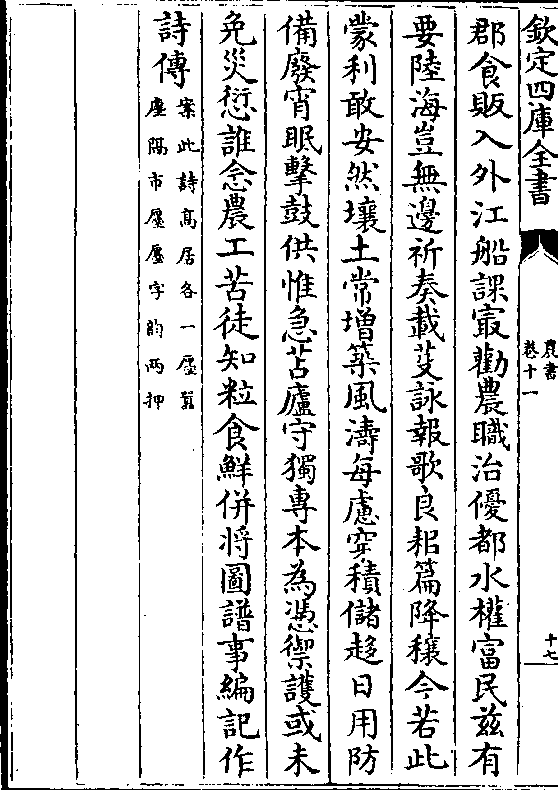 欽定四庫全書
農書
卷十一
十七
郡食販入外江船課㝡勸農職治優都水權富民兹有
要陸海豈無邊祈奏載芟詠報歌良耜篇降穰今若此
蒙利敢安然壤土常増築風濤每慮穿積儲趂日用防
備廢宵眠擊鼓供惟急苫廬守獨專本為憑禦䕶或未
免災愆誰念農工苦徒知粒食鮮併將圖譜事編記作
詩傳
案此詩髙居各一廛暨
塵隔市廛廛字韵兩押